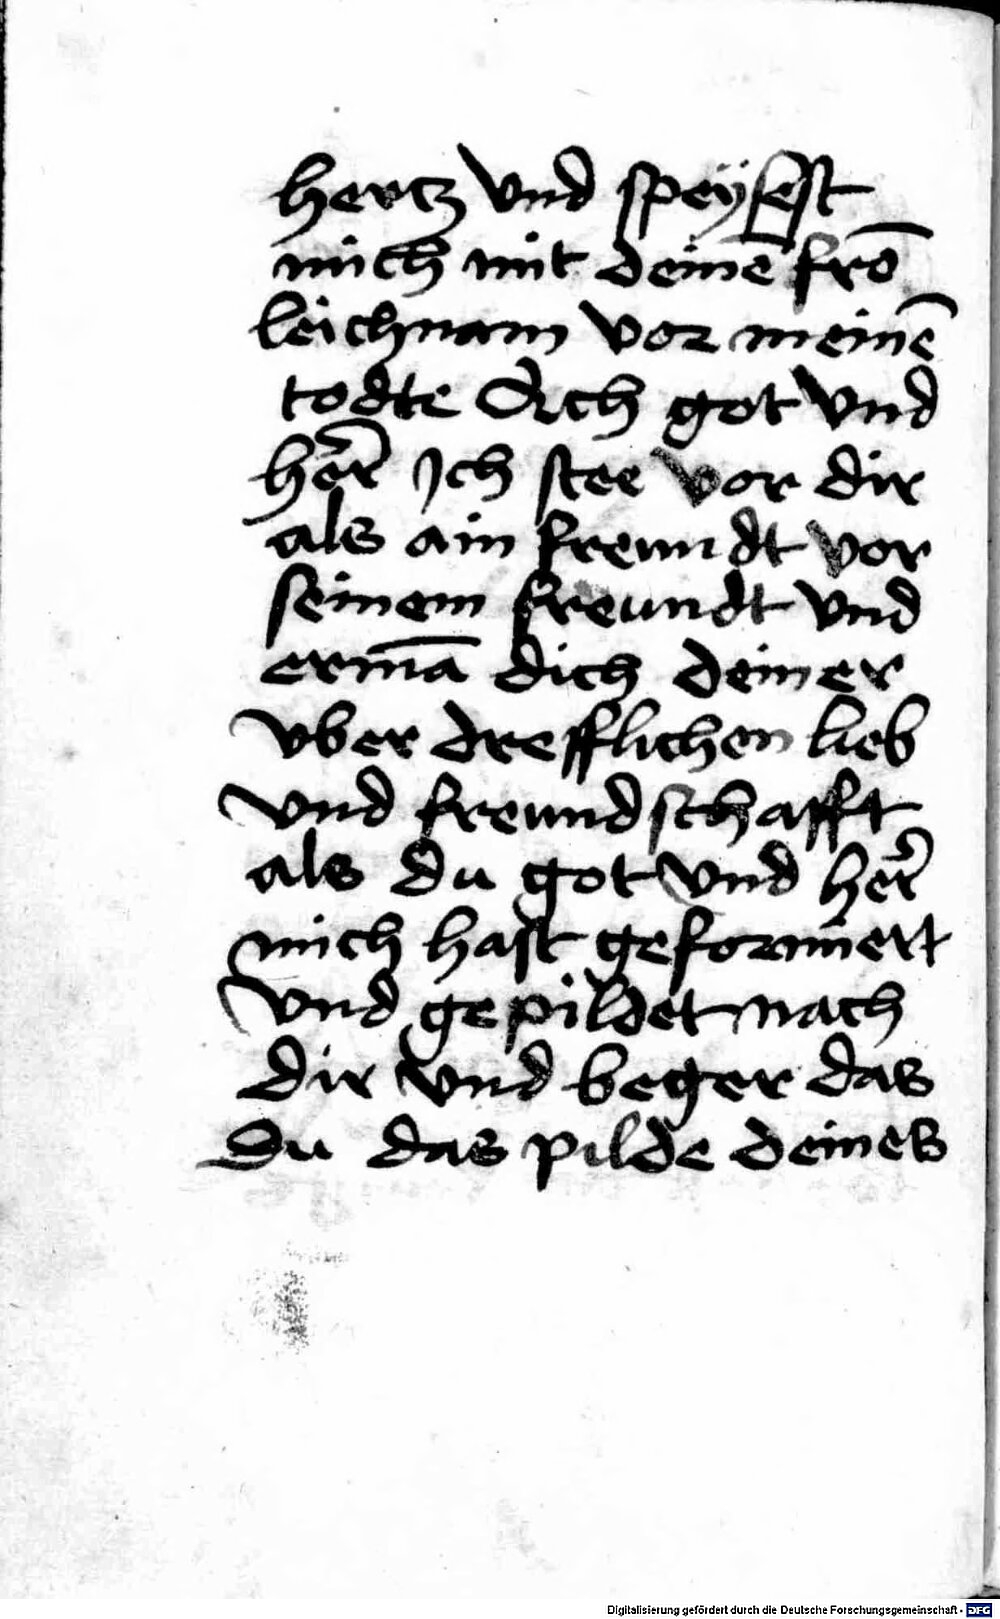 hertz vnd speÿsest
mich mit deinē frō
leichnam vor meinē
todte Ach got vnd
her̄ Ich stee vor dir
als ain freundt vor
seinem freundt vnd
ermā dich deiner
vber drefflichen lieb
vnd freundschafft
als du got vnd her̄
mich hast geformiert
vnd gepildet nach
dir vnd beger das
Du das pilde deines
Digitalisierung gefördert durch die Deutsche Forschungsgemeinschaft - DFG